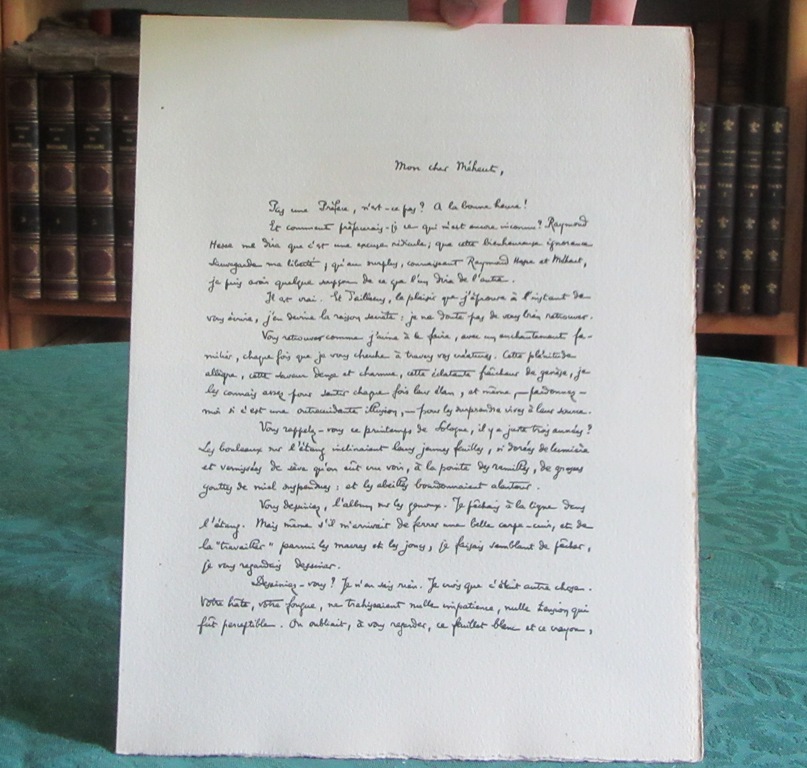 Mon cher Méheut,
Pas une Préface, n'est-ce pas? A la bonne heure!
Et comment préfacerais-je ce qui m'est encore inconnu? Raymond
Hesse me dira que c'est une excuse ridicule; que cette bienheureuse ignorance
sauvegarde ma liberté; qu'au surplus, connaissant Raymond Hesse et Méheut,
je puis avoir quelque soupçon de ce que l'un dira de l'autre.
Il est vrai. Et d'ailleurs, le plaisir que j'éprouve à l'instant de
vous écrire, j'en devine la raison secrète: je ne doute pas de vous bien retrouver.
Vous retrouver comme j'aime à le faire, avec un enchantement fa-
milier, chaque fois que je vous cherche à travers vos créatures. Cette plénitude
allègre, cette saveur dense et charnue, cette éclatante fraîcheur de genèse, je
les connais assez pour sentir chaque fois leur élan, et même, — pardonnez-
moi si c'est une outrecuidante illusion, — pour les surprendre vives à leur source.
Vous rappelez-vous ce printemps de Sologne, il y a juste trois années?
Les bouleaux sur l'étang inclinaient leurs jeunes feuilles, si dorées de lumière
et vernissées de sève qu'on eût cru voir, à la pointe des ramilles, de grosses
gouttes de miel suspendues; et les abeilles bourdonnaient alentour.
Vous dessiniez, l'album sur les genoux. Je pêchais à la ligne dans
l'étang. Mais même s'il m'arrivait de ferrer une belle carpe-cuir, et de
la "travailler" parmi les macres et les joncs, je faisais semblant de pêcher,
je vous regardais dessiner.
Dessiniez-vous? Je n'en sais rien. Je crois que c'était autre chose.
Votre hâte, votre fougue, ne trahissaient nulle impatience, nulle tension qui
fût perceptible. On oubliait, à vous regarder, ce feuillet blanc et ce crayon,